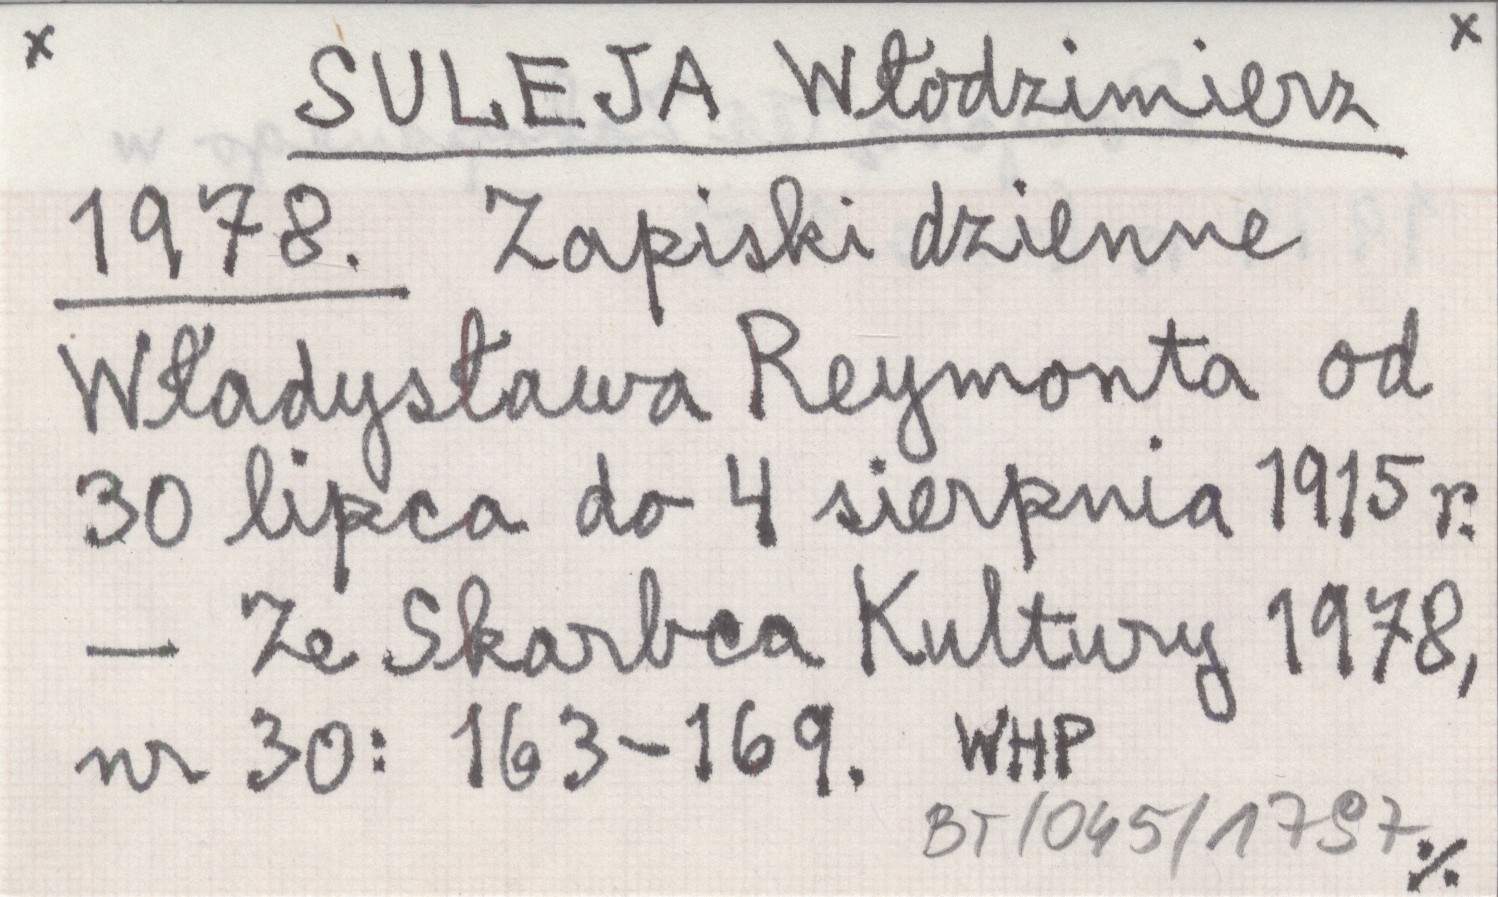 x x
SULEJA Włodzimierz
1978. Zapiski dzienne
Władysława Reymonta od
30 lipca do 4 sierpnia 1915 r.
— Ze Skarbca Kultury 1978,
nr 30: 163-169. WHP
BT/045/1797
./.